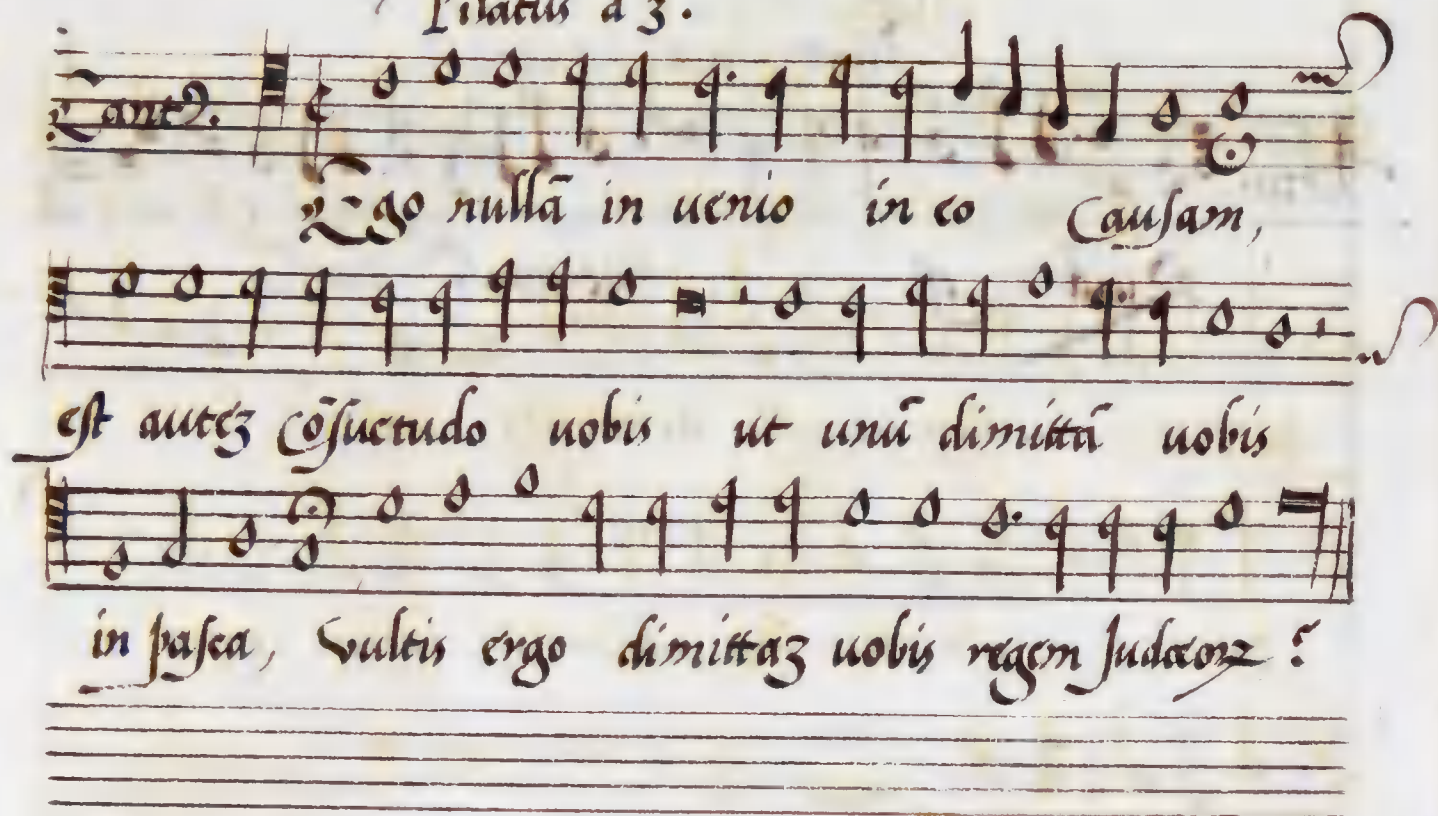 Pilatus a 3.
Cantꝰ.
Ego nullā in uenio in eo Causam,
est auteʒ cōsuetudo uobis ut unū dimittā uobis
in pasca, Vultis ergo dimittaʒ uobis regem Judæorꝝ ?